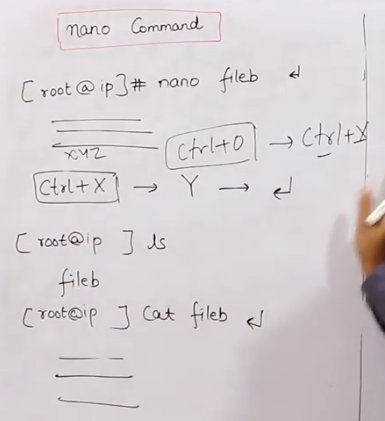 nano Command
[root@ip]# nano fileb ↵
xyz
Ctrl+O → Ctrl+X
Ctrl+X → Y → ↵
[root@ip ] ls
fileb
[root@ip ] Cat fileb ↵